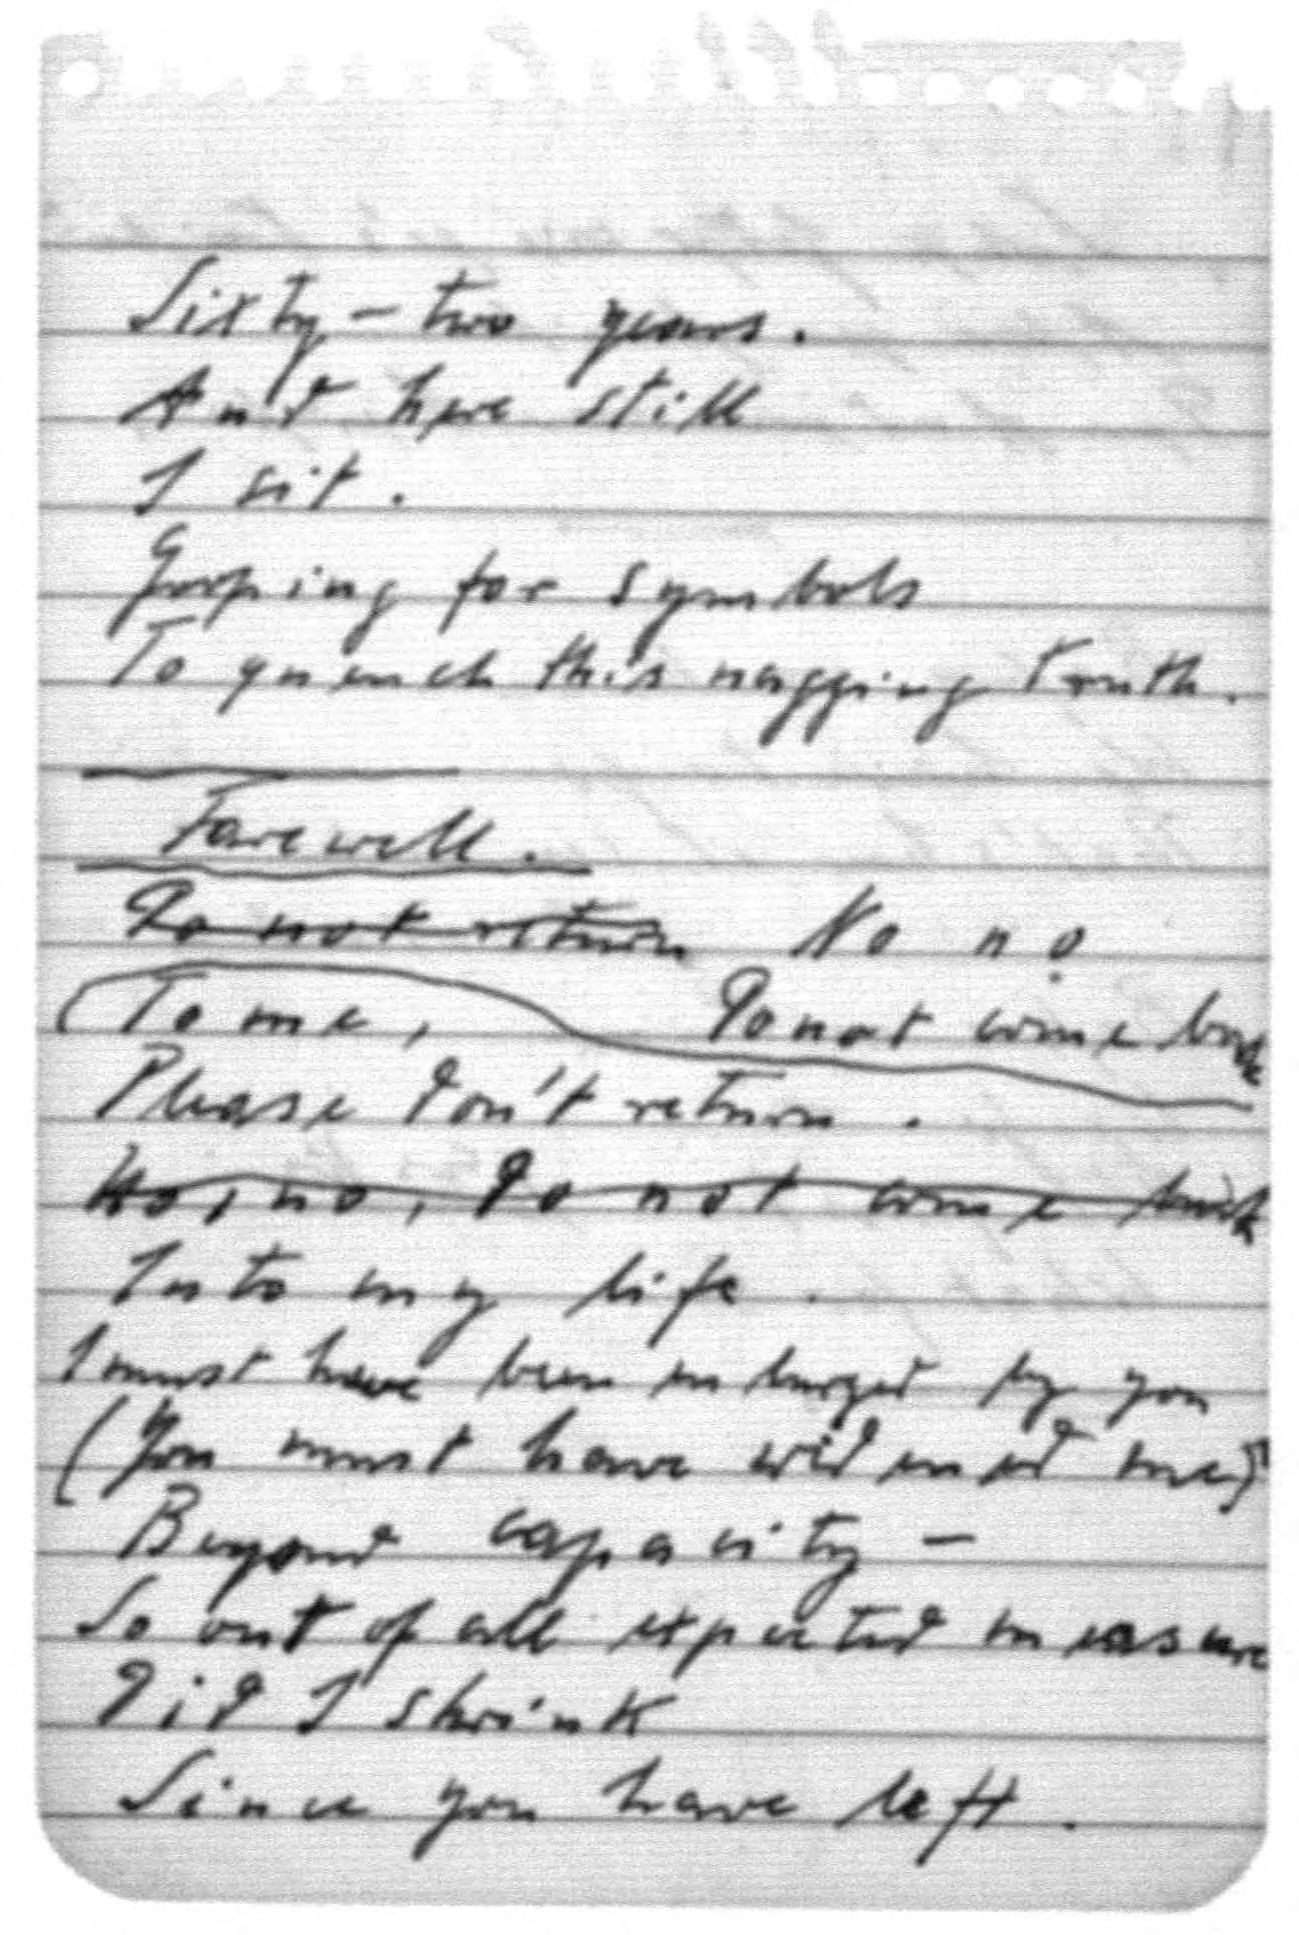 Sixty-two years.
And here still
I sit.
Groping for symbols
To quench this nagging truth.
Farewell.
Do not return No no
To me, Do not come back
Please don't return.
No, no, do not come back
Into my life.
I must have been enlarged by you
(You must have widened me)
Beyond capacity -
So out of all expected measure
Did I shrink
Since you have left.